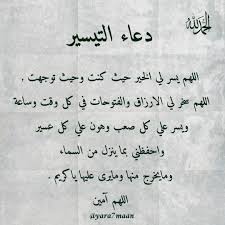 الحمدلله
دعاء التيسير
اللهم يسر لي الخير حيث كنت وحيث توجهت .
اللهم سخر لي الارزاق والفتوحات في كل وقت وساعة
ويسر علي كل صعب وهون علي كل عسير
واحفظني بما ينزل من السماء
ومايخرج منها ومايرى عليها ياكريم .
اللهم آمين
@yara7maan